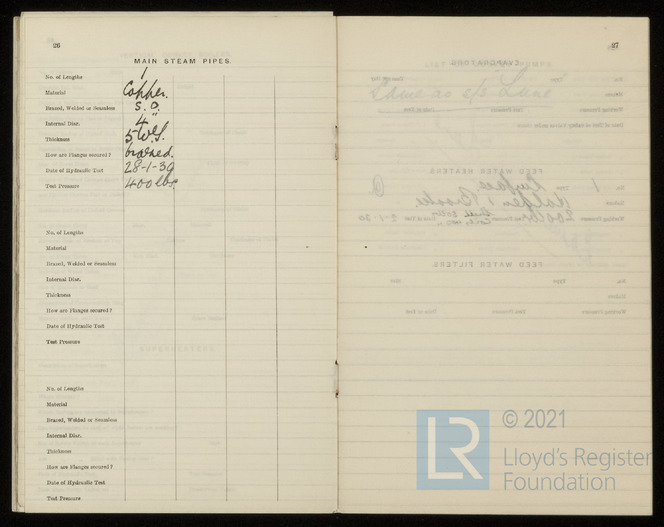 26
MAIN STEAM PIPES.
No. of Lengths 1
Material Copper.
Brazed, Welded or Seamless S. D.
Internal Diar. 4"
Thickness 5 W.G.
How are Flanges secured? brazed.
Date of Hydraulic Test 28-1-30
Test Pressure 400 lbs.
No. of Lengths
Material
Brazed, Welded or Seamless
Internal Diar.
Thickness
How are Flanges secured?
Date of Hydraulic Test
Test Pressure
No. of Lengths
Material
Brazed, Welded or Seamless
Internal Diar.
Thickness
How are Flanges secured?
Date of Hydraulic Test
Test Pressure
27
EVAPORATORS
Same as s/s Lune
FEED WATER HEATERS
FEED WATER FILTERS
LR
© 2021
Lloyd's Register
Foundation